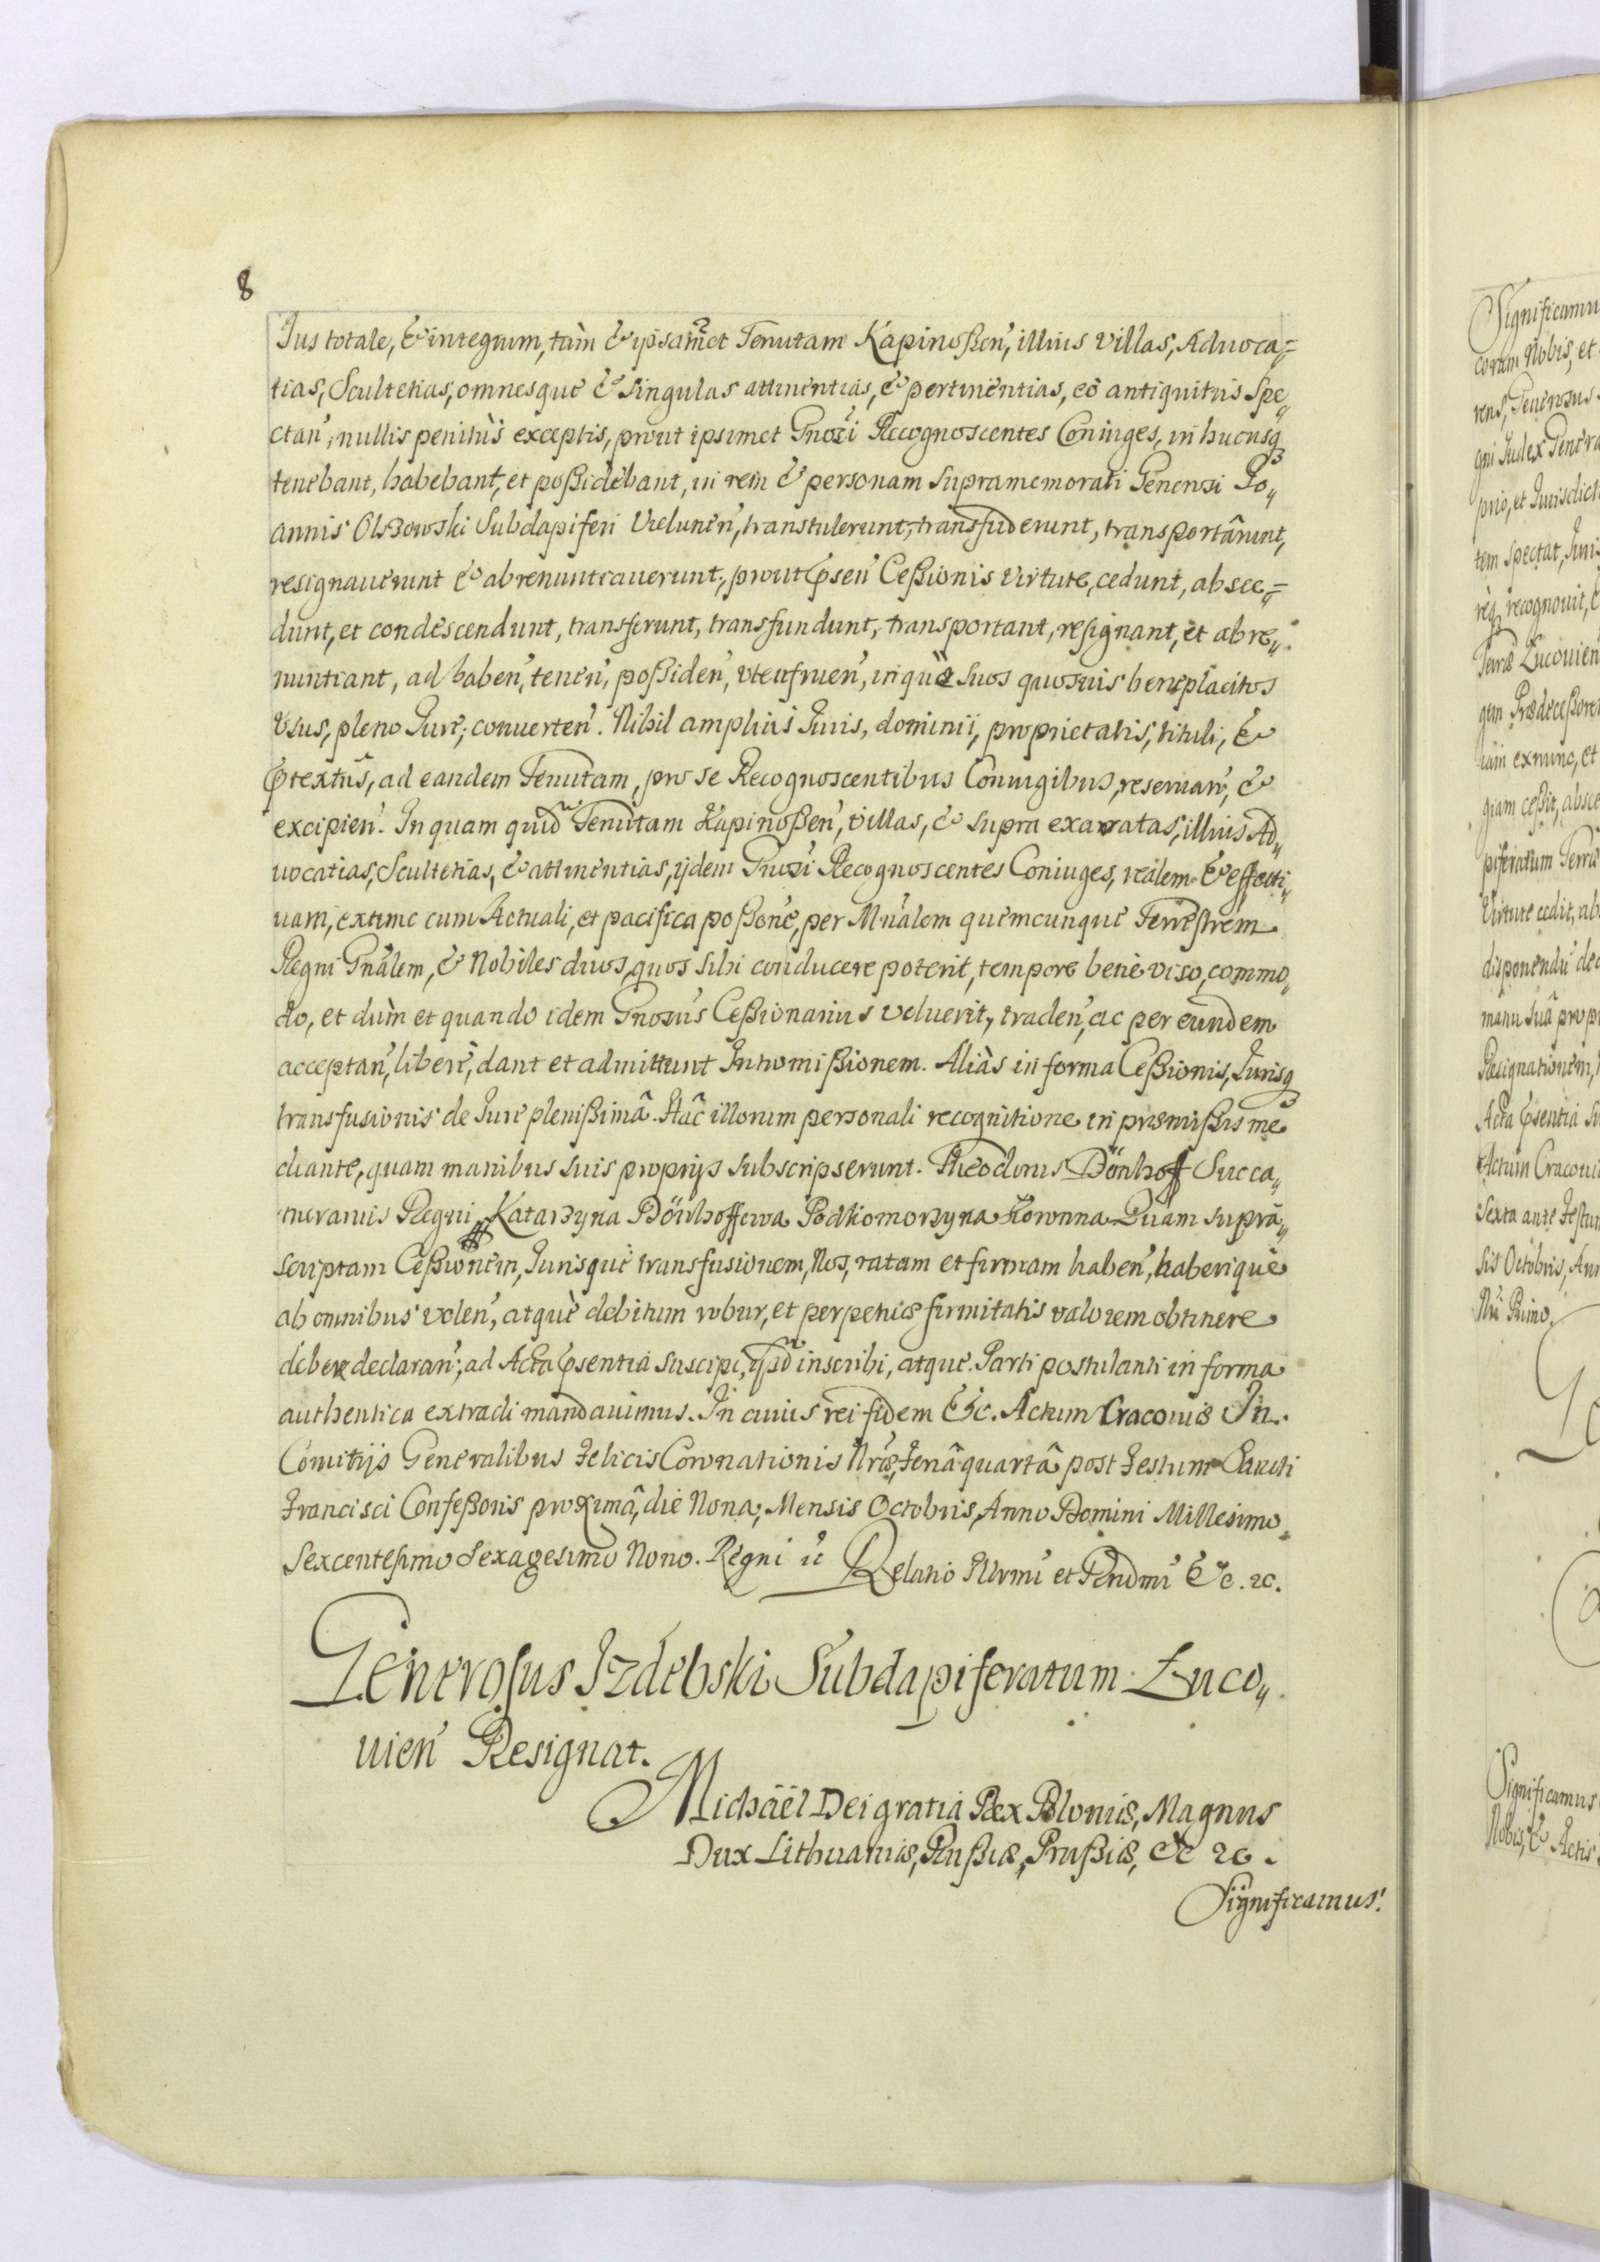 8
Jus totale, & integrum, tàm & ipsammet Tenutam Kapinoßen̄, illius villas, Aduoca=
tias, Scultetias, omnesque & singulas attinentias, & pertinentias, eò antiquitùs Spe„
ctan̄, nullis penitùs exceptis, prout ipsimet Gnosi Recognoscentes Coniuges, in hucusq3
tenebant, habebant, et poßidebant, in rem & personam supramemorati Generosi Jo„
annis Olszowski Subdapiferi Vielunen̄, transtulerunt, transfuderunt, transportârunt,
resignauerunt & abrenuntiauerunt, prout pn̄sen̄ Ceßionis virtute, cedunt, absce=
dunt, et condescendunt, transferunt, transfundunt, transportant, resignant, et abre„
nuntiant, ad haben̄, tenen̄, poßiden̄, vtenfruen̄, inquè suos quosuis beneplacitos
Vsus, pleno Jure, conuerten̄. Nihil amplius Juris, dominij, proprietatis, tituli, &
prætextûs, ad eandem Tenutam, pro se Recognoscentibus Coniugibus, reseruan̄, &
excipien̄. In quam quid̄m Tenutam Kapinoßen̄, villas, & supra exaratas, illius Ad„
uocatias, Scultetias, & attinentias, ijdem Gnosi Recognoscentes Coniuges, realem & effecti„
uam, extunc cum Actuali, et pacifica poßone, per Mn̄alem quemcunque Terrestrem
Regni Gn̄alem, & Nobiles duos, quos sibi conducere poterit, tempore benè viso, commo„
do, et dùm et quando idem Gnosus Ceßionarius voluerit, traden̄, ac per eundem
acceptan̄, liberè, dant et admittunt Intromißionem. Aliàs in forma Ceßionis, Jurisq3
transfusionis de Jure plenißimâ. Hâc illorum personali recognitione in præmißis me
diante, quam manibus suis proprijs subscripserunt. Theodorus Dönhoff Succa„
merarius Regni, Katarzyna Dönhoffowa Podkomorzyna Koronna. Quam supra„
scriptam Ceßionem, Jurisquè transfusionem, Nos, ratam et firmam haben̄, haberiquè
ab omnibus volen̄, atquè debitum robur, et perpetuæ firmitatis valorem obtinere
debere declaran̄, ad Acta pn̄sentia suscipi, ijsd̄m inscribi, atque Parti postulanti in forma
authentica extradi mandauimus. In cuius rei fidem &c. Actum Cracouiæ In
Comitijs Generalibus Felicis Coronationis Nræ, Feriâ quartâ post Festum Sancti
Francisci Confeßoris proximâ, die Nona, Mensis Octobris, Anno Domini Millesimo
Sexcentesimo Sexagesimo Nono. Regni ꝛc Relatio Illrmi et Rendmi &c. ꝛc.
Generosus Izdebski Subdapiferatum Luco„
uien̄ Resignat.
Michäel Dei gratia Rex Poloniæ, Magnus
Dux Lithuaniæ, Rußiæ, Prußiæ, &c ꝛc.
Significamus